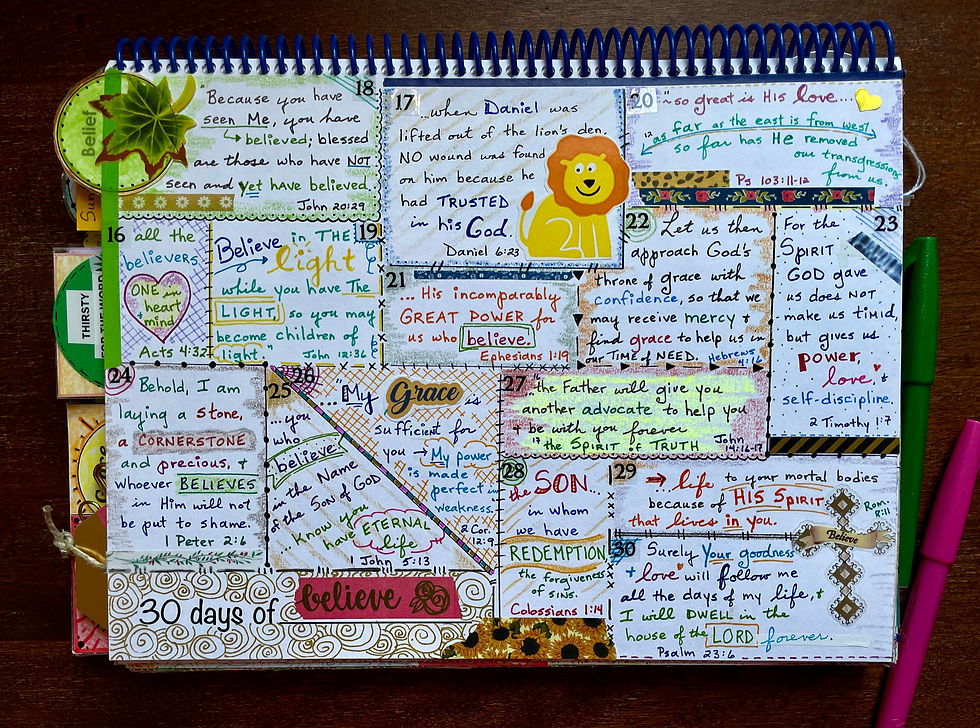 Belief
18
"Because you have
seen Me, you have
believed; blessed
are those who have NOT
seen and yet have believed.
John 20:29
17
...when Daniel was
lifted out of the lion's den,
NO wound was found
on him because he
had TRUSTED
in his God.
Daniel 6:23
20
~so great is HIS love...
12
as far as the east is from west,
so far has He removed
our transgressions
from us.
Ps 103:11-12
16
all the
believers
ONE in
heart
mind
Acts 4:32
19
Believe in THE
light
while you have The
LIGHT, so you may
become children of
light."
John 12:36
21
... His incomparably
GREAT POWER for
us who believe.
Ephesians 1:19
22
Let us then
approach God's
throne of grace with
confidence, so that we
may receive mercy +
find grace to help us in
our TIME of NEED.
Hebrews
4:16
23
For the
SPIRIT
GOD gave
us does NOT
make us timid,
but gives us
power,
love, +
self-discipline.
2 Timothy 1:7
THIRSTY
24
Behold, I am
laying a stone,
a CORNERSTONE
and precious, +
whoever BELIEVES
in Him will not
be put to shame.
1 Peter 2:6
25
...you
who
believe
in the Name
of the Son of GOD
...Know you
have ETERNAL
life
1 John 5:13
26
"My Grace is
sufficient for
you → My power
is made
perfect in
weakness.
2 Cor.
12:9
27
16
...the Father will give you
another advocate to help you
+ be with you forever
17
the Spirit of TRUTH
John
14:16-17
28
the SON...
in whom
we have
REDEMPTION,
the forgiveness
of SINS.
Colossians 1:14
29
→ life to your mortal bodies
because of HIS SPIRIT
that lives in you.
Rom.
8:11
Believe
30
Surely Your goodness
+ love will follow me
all the days of my life, +
I will DWELL in the
house of the LORD forever.
Psalm 23:6
30 days of believe